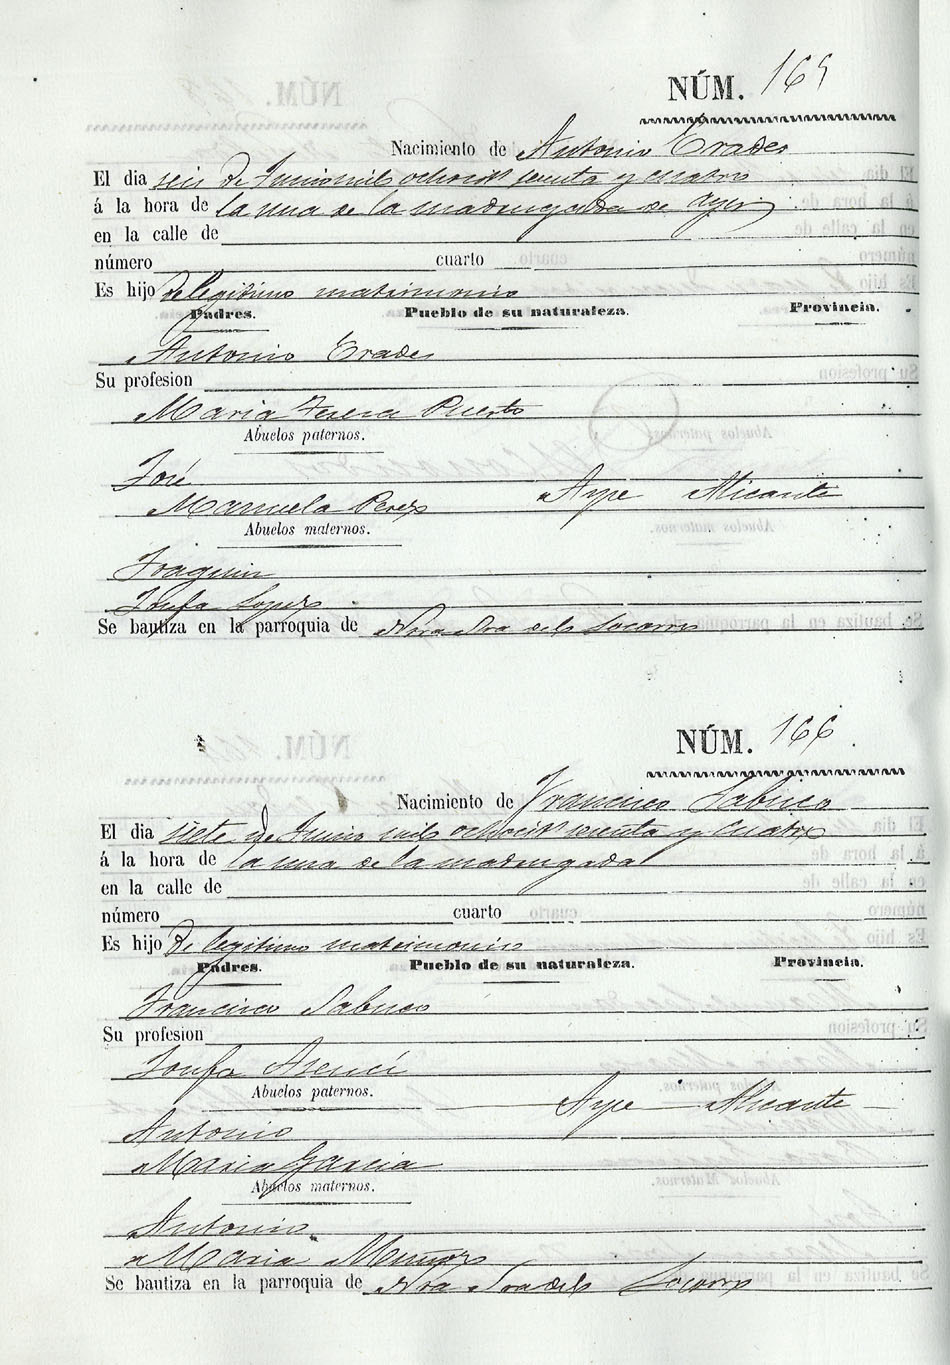 NÚM. 165
Nacimiento de Antonio Erades
El dia seis de Junio mil ochocitos sesenta y cuatro
á la hora de la una de la madrugada de ayer
en la calle de
número cuarto
Es hijo de legitimo matrimonio
Padres. Pueblo de su naturaleza. Provincia.
Antonio Erades
Su profesion
Maria Teresa Puerto
Abuelos paternos.
José
Manuela Perez Aspe Alicante
Abuelos maternos.
Joaquin
Josefa Lopez
Se bautiza en la parroquia de Ntra Sra del Socorro
NÚM. 166
Nacimiento de Francisco Sabuco
El dia siete de Junio mil ochocitos sesenta y cuatro
á la hora de la una de la madrugada
en la calle de
número cuarto
Es hijo de legitimo matrimonio
Padres. Pueblo de su naturaleza. Provincia.
Francisco Sabuco
Su profesion
Josefa Asencí
Abuelos paternos.
Aspe Alicante
Antonio
Maria Garcia
Abuelos maternos.
Antonio
Maria Muñoz
Se bautiza en la parroquia de Ntra Sra del Socorro